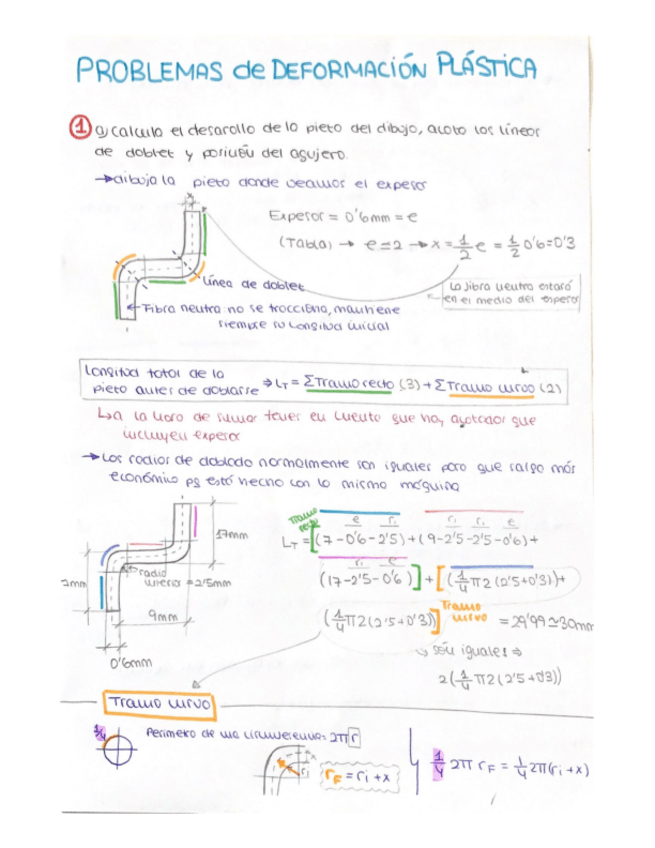 PROBLEMAS de DEFORMACIÓN PLÁSTICA
① a) calcula el desarollo de la pieta del dibujo, acota las líneas
de doblet y posiuēu del agujero.
→ dibuja la pieta donde veamos el expesor
x
Expesor = 0'6mm = e
(Tabla) → e=2 → x = 1/2 e = 1/2 0'6 = 0'3
línea de doblet
La fibra neutra estará
en el medio del espesor
Fibra neutra no se tracciona, mantiene
siempre su longitud inicial
Longitud total de la
pieta antes de doblarse ⇒ LT = ΣTramo recto (3) + ΣTramo curvo (2)
↳ a la hora de sumar tener en cuenta que hay acotados que
incluyen expesor
→ Los radios de doblado normalmente son iguales para que salga más
económico pq está hecho con la misma máquina
17mm
radio
interior = 2'5mm
2mm
9mm
0'6mm
Tramo
recto
e ri ri ri e
LT = [(7 - 0'6 - 2'5) + (9 - 2'5 - 2'5 - 0'6) +
ri e
(17 - 2'5 - 0'6)] + [(1/4 π 2 (2'5 + 0'3)) +
(1/4 π 2 (2'5 + 0'3))] Tramo curvo = 29'99 ≃ 30mm
↳ son iguales ⇒
2(1/4 π 2 (2'5 + 0'3))
Tramo curvo
Perimetro de una circunferencia = 2π r
x
ri
rF = ri + x
1/4 2π rF = 1/4 2π (ri + x)